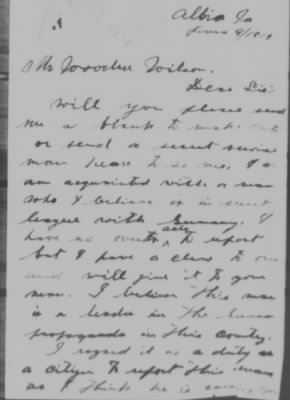 Albia Ia
June 9/1918
Mr Woodrow Wilson.
Dear Sir:
Will you please send
me a blank to make out
or send a secret service
man here to see me, I
am acquainted with a man
who I believe is in secret
league with Germany. I
have no overt acts to report
but I have a clew to one
and will give it to your
man. I believe this man
is a leader in the German
propaganda in this county.
I regard it as a duty as
a citizen to report this man
as I think he is